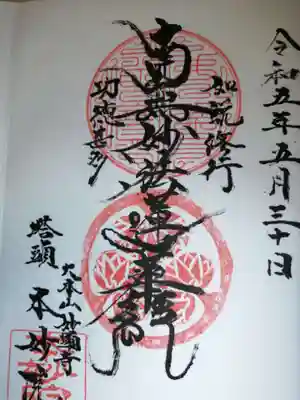 令和五年五月三十日
如説修行
南無妙法蓮華経
功徳甚多
大本山妙顕寺
塔頭
本妙